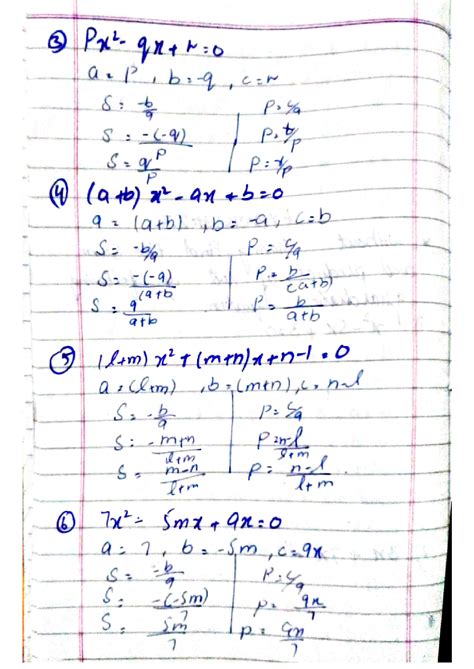 ③ Px² - qx + r = 0
a = P , b = -q , c = r
S = -b/a | P = c/a
S = -(-q)/P | P = r/P
S = q/P | P = r/P
④ (a+b) x² - ax + b = 0
a = (a+b) , b = -a , c = b
S = -b/a | P = c/a
S = -(-a)/(a+b | P = b/(a+b)
S = a/a+b | P = b/a+b
⑤ (l+m) x² + (m+n)x + n-l = 0
a = (l+m) , b = (m+n) , c = n-l
S = -b/a | P = c/a
S = -m+n/l+m | P = n-l/l+m
S = m-n/l+m | P = n-l/l+m
⑥ 7x² - 5mx + 9x = 0
a = 7 , b = -5m , c = 9x
S = -b/a | P = c/a
S = -(-5m)/7 | P = 9x/7
S = 5m/7 | P = 9x/7